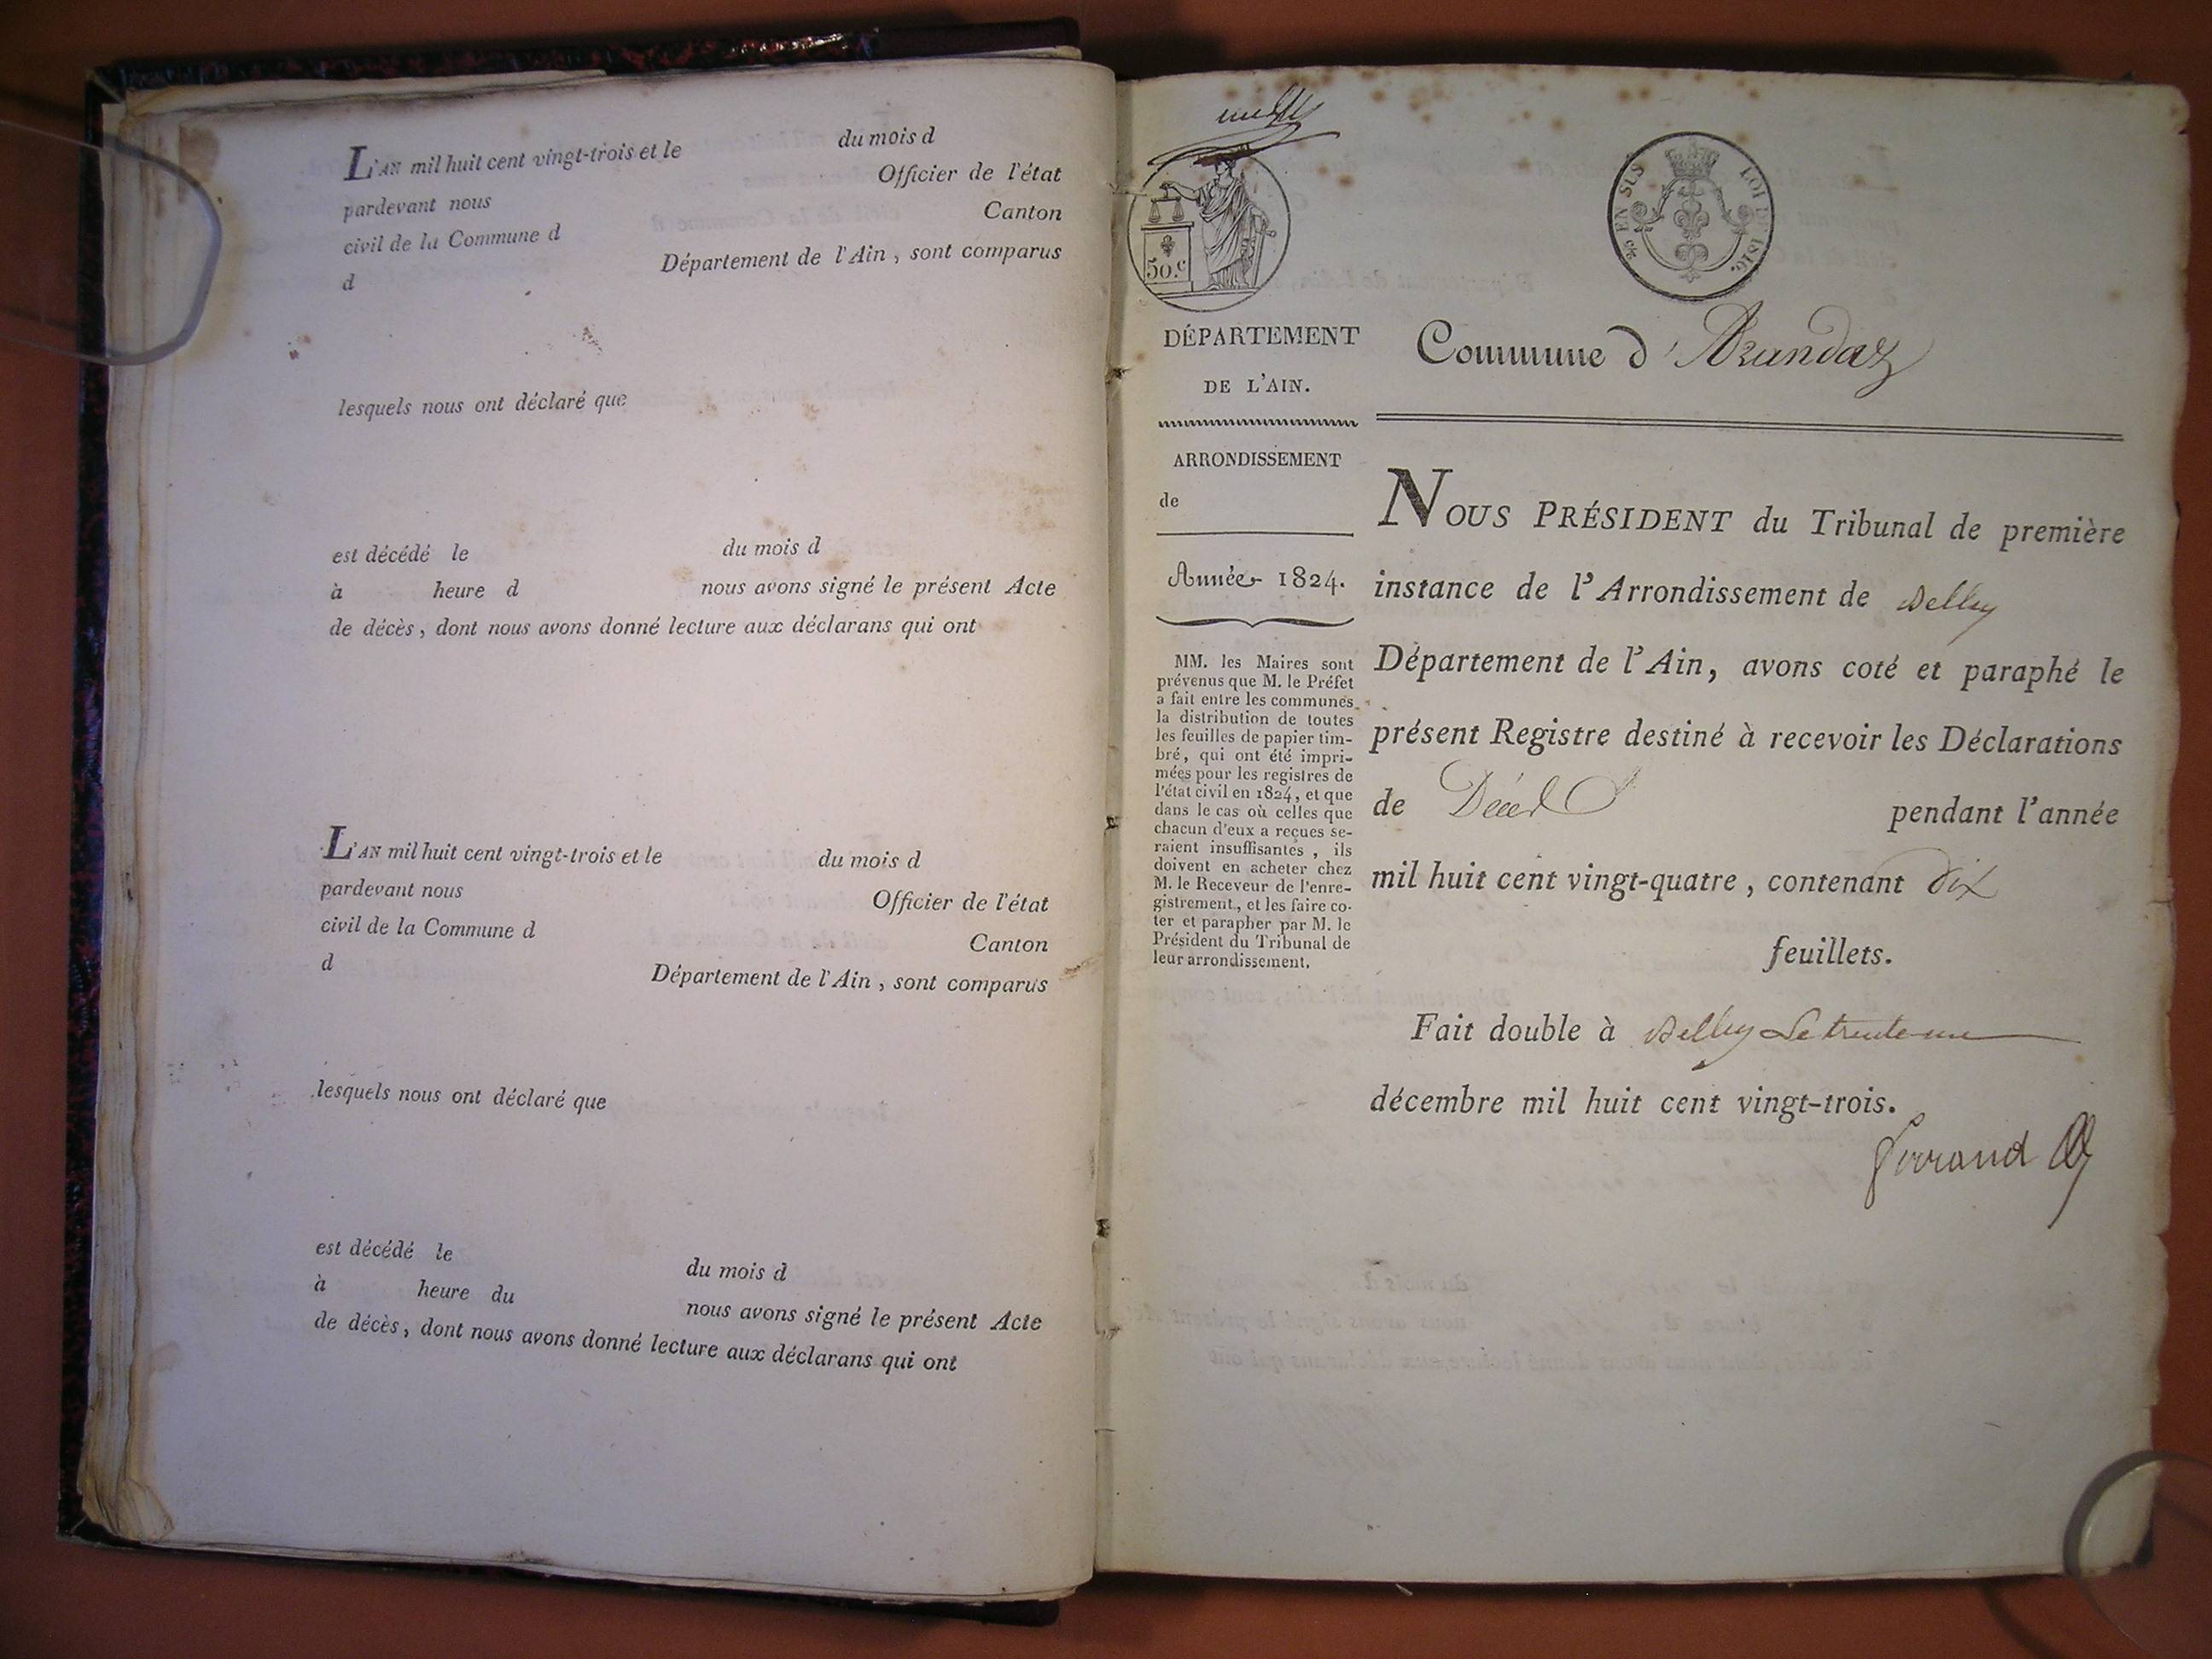 L'AN mil huit cent vingt-trois et le du mois d
pardevant nous Officier de l'état
civil de la Commune d Canton
d Département de l'Ain, sont comparus
lesquels nous ont déclaré que
est décédé le du mois d
à heure d nous avons signé le présent Acte
de décès, dont nous avons donné lecture aux déclarans qui ont
L'AN mil huit cent vingt-trois et le du mois d
pardevant nous Officier de l'état
civil de la Commune d Canton
d Département de l'Ain, sont comparus
lesquels nous ont déclaré que
est décédé le du mois d
à heure du nous avons signé le présent Acte
de décès, dont nous avons donné lecture aux déclarans qui ont
50.c
EN SUS LOI DE 1816.
DÉPARTEMENT
DE L'AIN.
ARRONDISSEMENT
de
Année 1824.
MM. les Maires sont
prévenus que M. le Préfet
a fait entre les communes
la distribution de toutes
les feuilles de papier tim-
bré, qui ont été impri-
mées pour les registres de
l'état civil en 1824, et que
dans le cas où celles que
chacun d'eux a reçues se-
raient insuffisantes, ils
doivent en acheter chez
M. le Receveur de l'enre-
gistrement, et les faire co-
ter et parapher par M. le
Président du Tribunal de
leur arrondissement.
Commune d'Arandaz
NOUS PRÉSIDENT du Tribunal de première
instance de l'Arrondissement de Belley
Département de l'Ain, avons coté et paraphé le
présent Registre destiné à recevoir les Déclarations
de Décès pendant l'année
mil huit cent vingt-quatre, contenant dix
feuillets.
Fait double à Belley Le trente un
décembre mil huit cent vingt-trois.